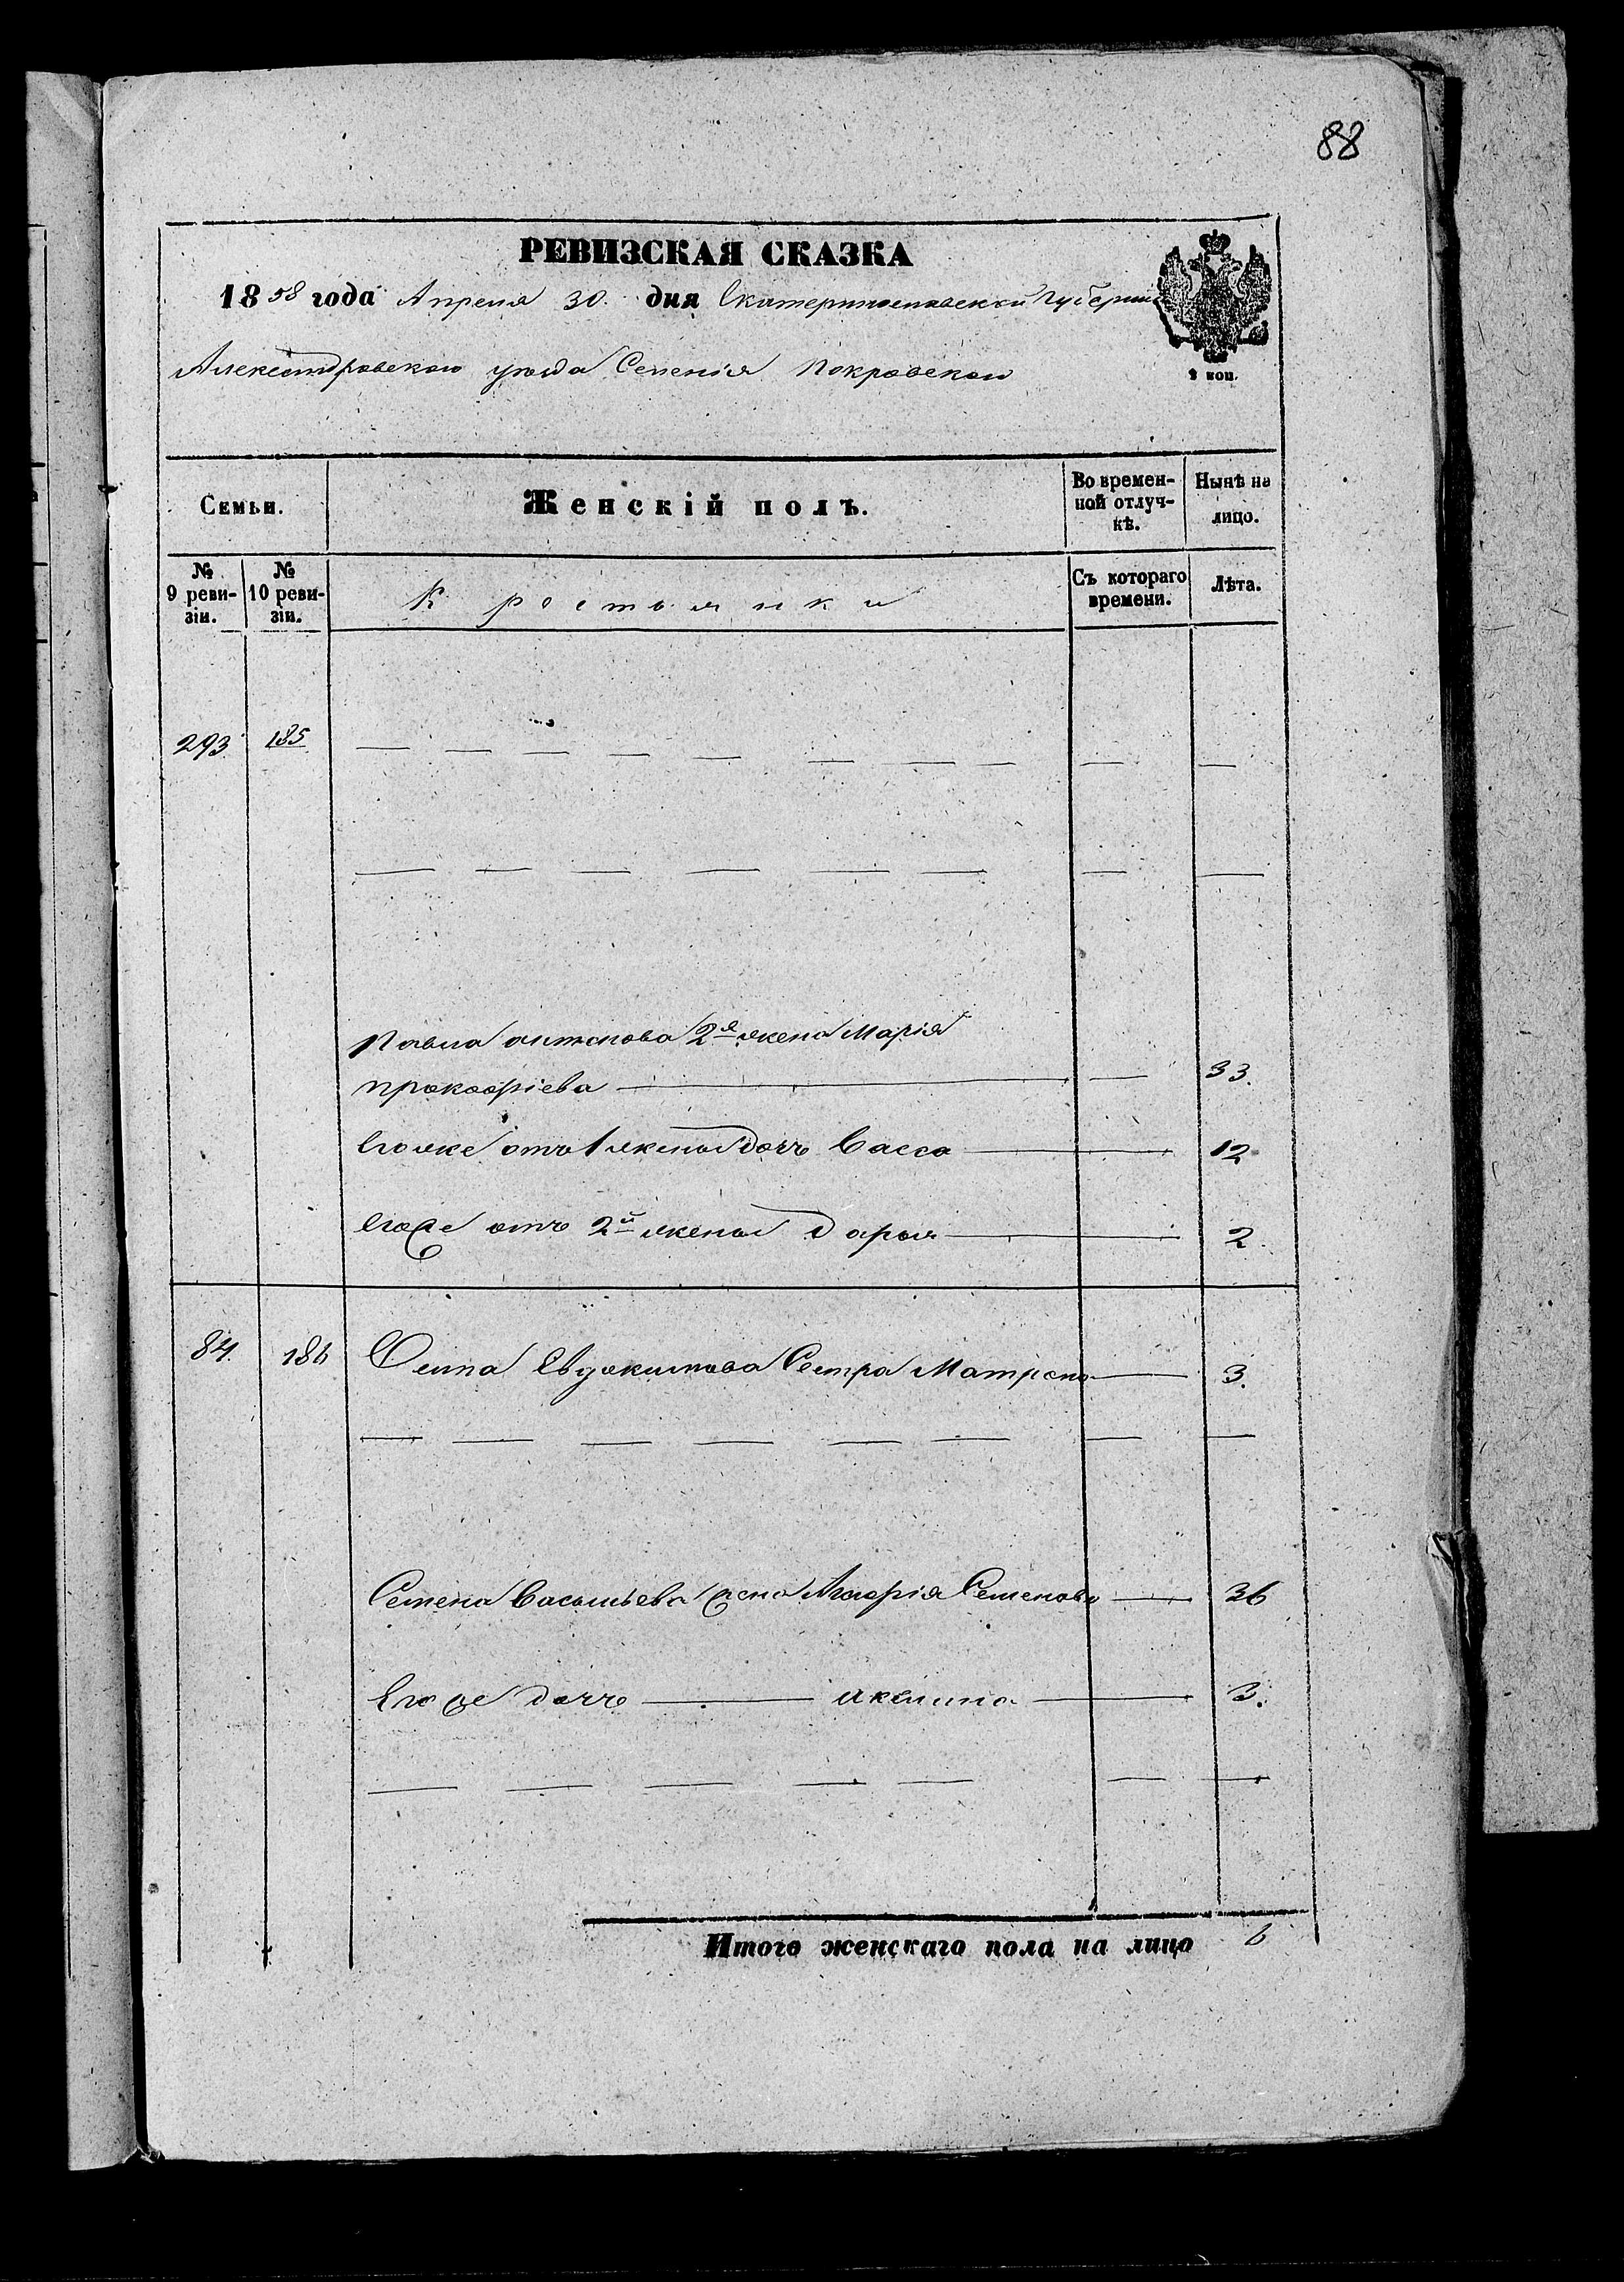 88
РЕВИЗСКАЯ СКАЗКА
1858 года Апреля 30. дня Екатеринославской Губернии
Александровского уезда Селенія Покровского
2 коп.
Семьи.
Женскій полъ.
Во времен-
ной отлуч-
кѣ.
Нынѣ на
лицо.
№
9 реви-
зіи.
№
10 реви-
зіи.
Крестьянки
Съ котораго
времени.
Лѣта.
293. 185
Павла антонова 2я жена Марія
прокофіева 33.
Его же отъ 1 жены дочь Васса 12
Его же отъ 2й жены Дарья 2.
84. 186 Евдокимова Сестра Матрена 3.
Семена Васильева жена Марія Семенова 36
Его же дочь акилина 3.
Итого женскаго пола на лицо 6